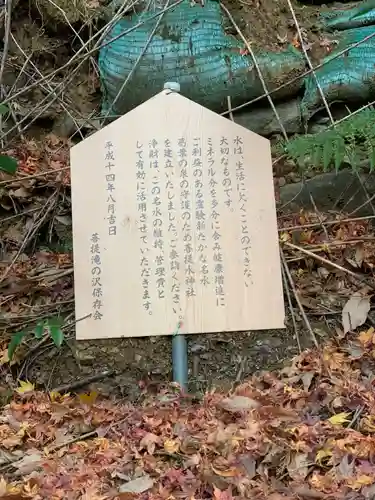 水は生活に欠くことのできない
大切なものです。
ミネラル分を多分に含み健康増進に
ご利益のある霊験新たかな名水
若葉の泉の守護のため菩提水神社
を建立いたしました。ご参詣ください。
浄財は、この名水の維持、管理費と
して有効に活用させていただきます。
平成十四年八月吉日
菩提滝の沢保存会